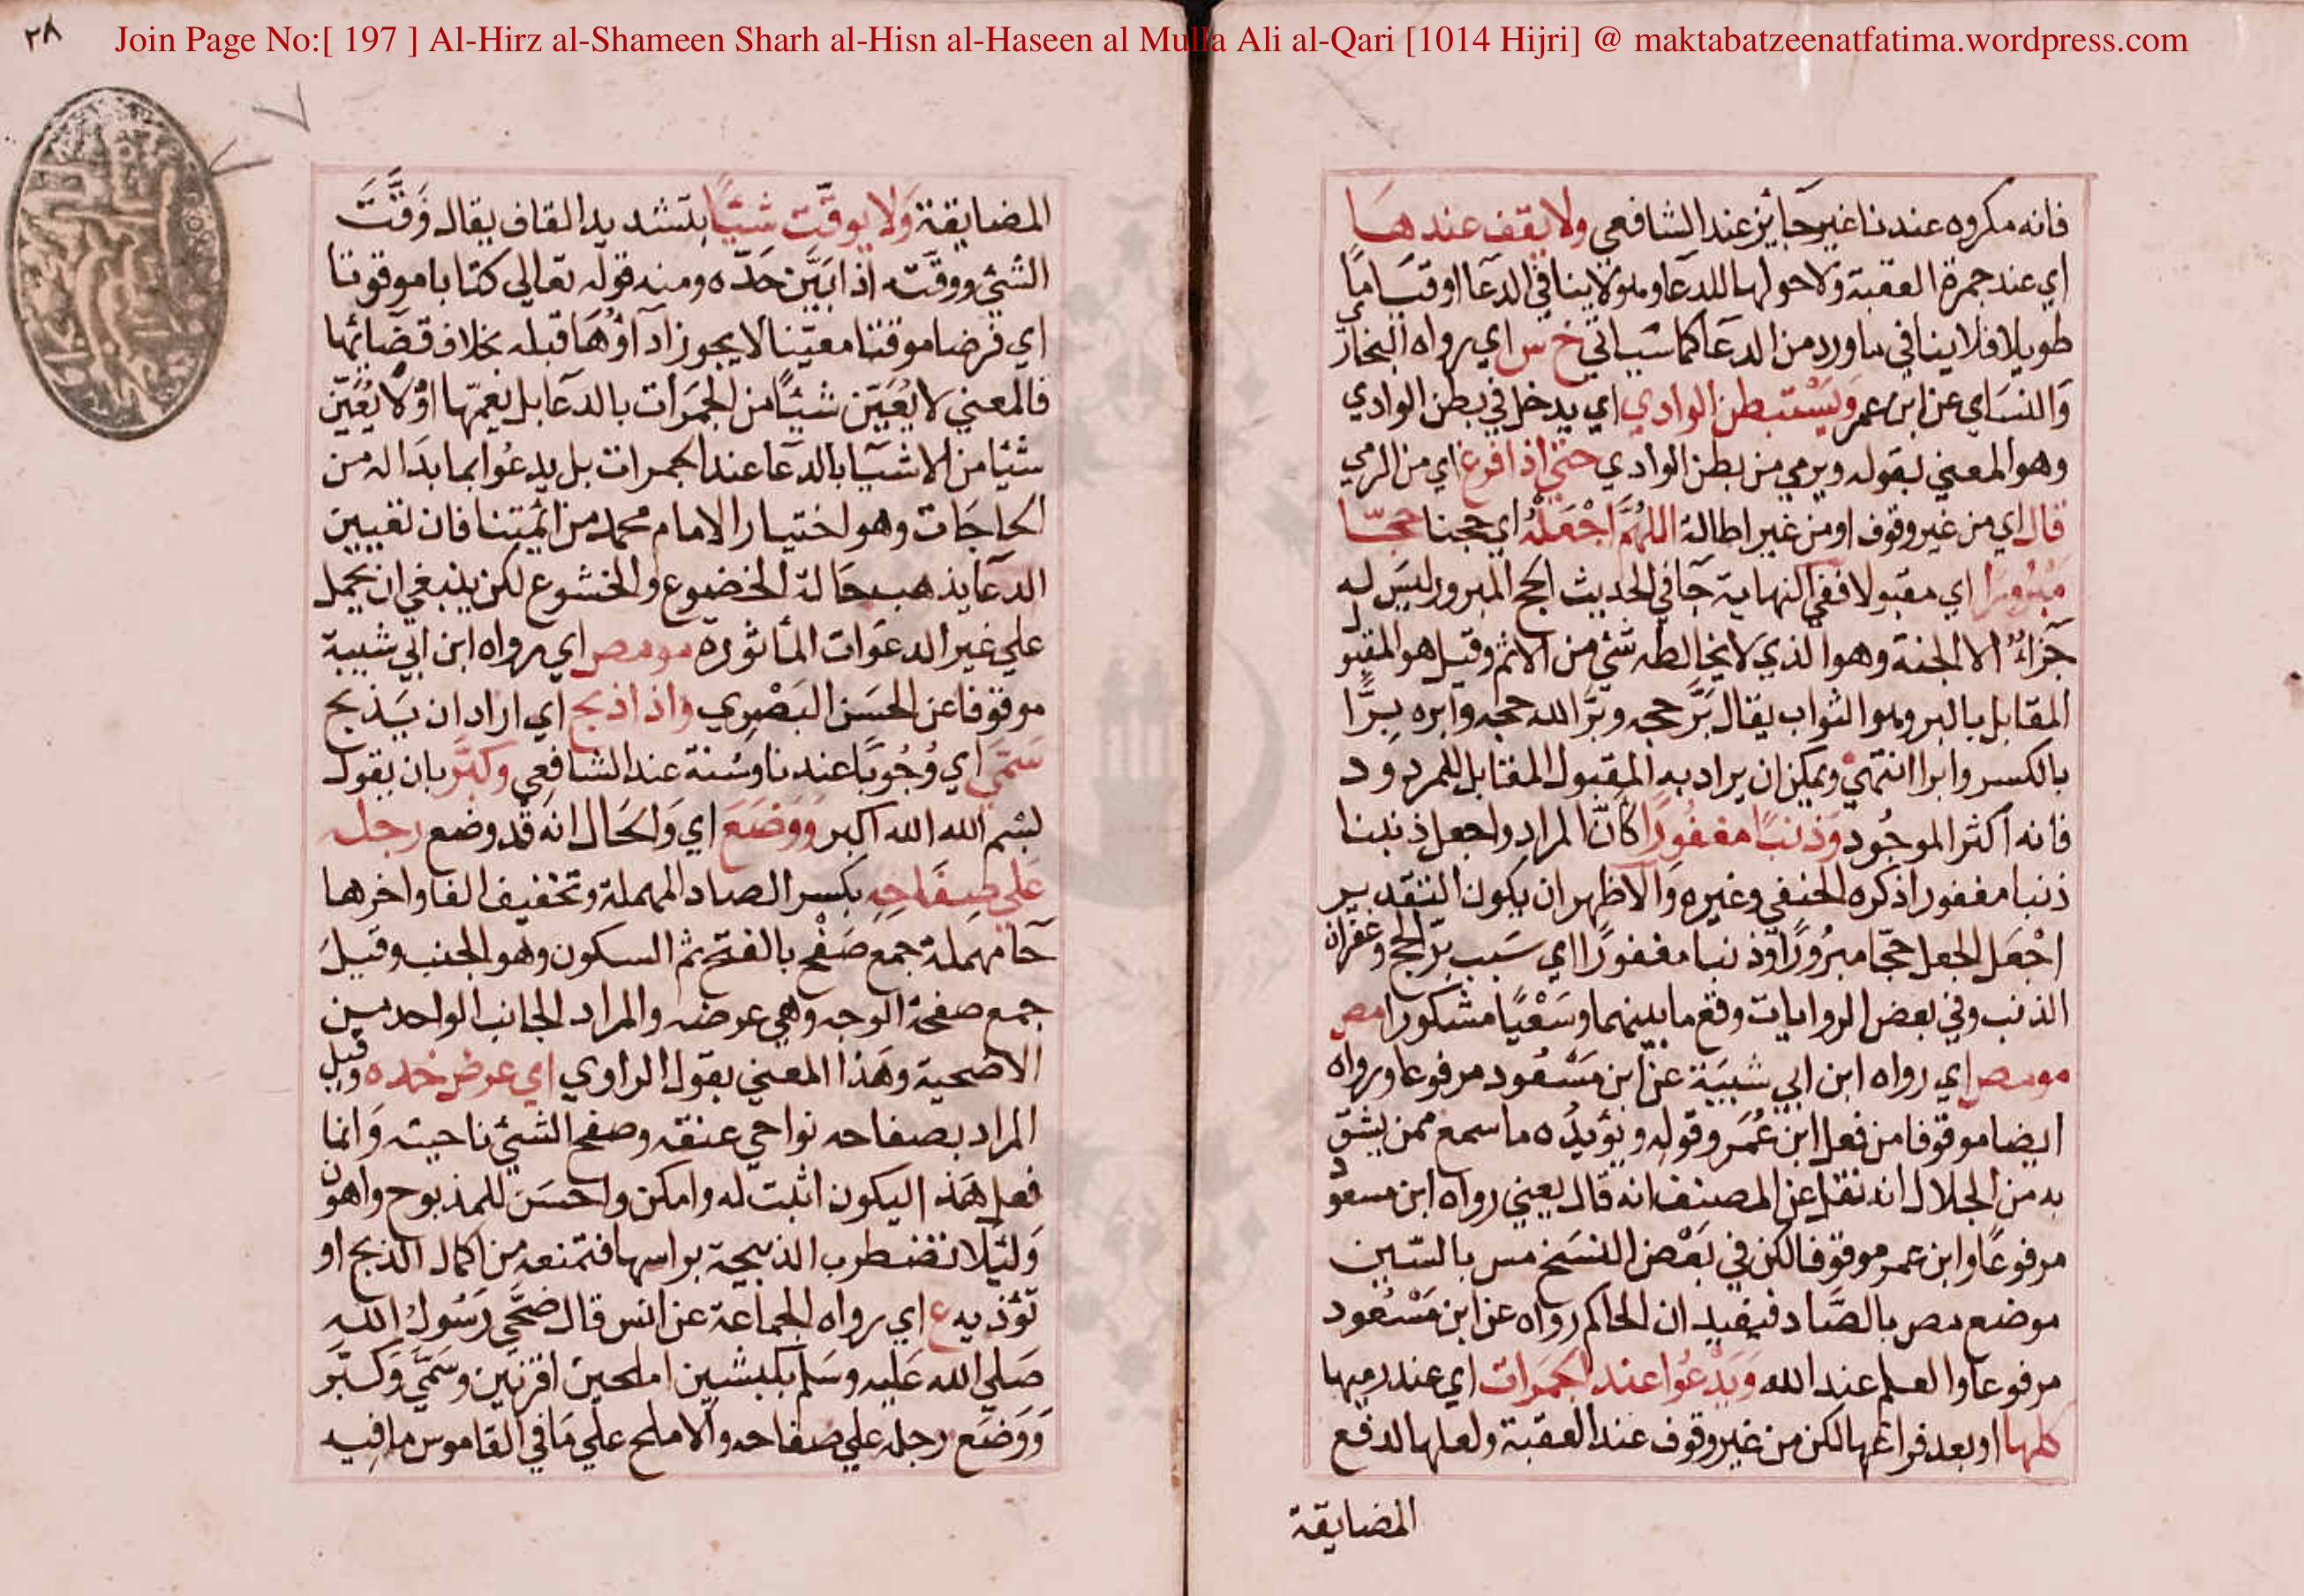 ٢٨
Join Page No:[ 197 ] Al-Hirz al-Shameen Sharh al-Hisn al-Haseen al Mulla Ali al-Qari [1014 Hijri] @ maktabatzeenatfatima.wordpress.com
فانه مكروه عندنا غير جايز عند الشافعي ولا يقف عندها
اي عند جمرة العقبة ولا حولها للدعا وهو لا ينافي الدعا او قياما
طويلا فلا ينافي ما ورد من الدعا كما سياتي خ س اي رواه البخار
والنساي عن ابن عمر ويستبطن الوادي اي يدخل في بطن الوادي
وهو المعني بقوله ويرمي من بطن الوادي حتي اذا فرغ اي من الرمي
قال اي من غير وقوف او من غير اطالة اللهم اجعله اي حجنا حجا
مبرورا اي مقبولا ففي النهاية جا في الحديث الحج المبرور ليس له
جزاء الا الجنة وهو الذي لا يخالطه شي من الاثم وقيل هو المقبو
المقابل بالبر وهو الثواب يقال بر حجه وبر الله حجه وابره برا
بالكسر وابرا انتهي ويمكن ان يراد به المقبول المقابل للمردود
فانه اكثر الموجود وذنبا مغفورا كان المراد واجعل ذنبنا
ذنبا مغفورا ذكره الحنفي وغيره والاظهر ان يكون التقدير
اجعل الجعل حجا مبرورا وذنبا مغفورا اي سبب بر الحج وغفران
الذنب وفي بعض الروايات وقع ما بينهما وسعيا مشكورا مص
مو مص اي رواه ابن ابي شيبة عن ابن مسعود مرفوعا ورواه
ايضا موقوفا من فعل ابن عمر وقوله ويؤيده ما سمع ممن يثق
به من الجلال انه نقل عن المصنف انه قال يعني رواه ابن مسعود
مرفوعا وابن عمر موقوفا لكن في بعض النسخ مس بالسين
موضع مص بالصاد فيفيد ان الحاكم رواه عن ابن مسعود
مرفوعا والعلم عند الله ويدعوا عند الجمرات اي عند رميها
كلها او بعد فراغها لكن من غير وقوف عند العقبة ولعلها لدفع
المضايقة
المضايقة ولا يوقت شيئا بتشديد القاف يقال وقت
الشئ ووقته اذا بين حده ومنه قوله تعالي كتابا موقوتا
اي فرضا موقتا معينا لا يجوز اداؤها قبله بخلاف قضائها
فالمعني لا يعين شيئا من الجمرات بالدعا بل يعمها او لا يعين
شئيا من الاشيا بالدعا عند الجمرات بل يدعوا بما بدا له من
الحاجات وهو اختيار الامام محمد من ائمتنا فان تعيين
الدعا يذهب حالة الخضوع والخشوع لكن ينبغي ان يحمل
علي غير الدعوات الماثوره مو مص اي رواه ابن ابي شيبة
موقوفا عن الحسن البصري واذا ذبح اي اراد ان يذبح
سمي اي وجوبا عندنا وسنة عند الشافعي وكبر بان يقول
بسم الله الله اكبر ووضع اي والحال انه قد وضع رجله
علي صفاحه بكسر الصاد المهملة وتخفيف الفا واخرها
حا مهملة جمع صفح بالفتح ثم السكون وهو الجنب وقيل
جمع صفحة الوجه وهي عرضه والمراد الجانب الواحد من
الاضحية وهذا المعني بقول الراوي اي عرض خده وقيل
المراد بصفاحه نواحي عنقه وصفح الشئ ناحيته وانما
فعل هذا ليكون اثبت له وامكن واحسن للمذبوح واهون
ولئلا تضطرب الذبيحة براسها فتمنعه من اكمال الذبح او
تؤذيه ع اي رواه الجماعة عن انس قال ضحي رسول الله
صلي الله عليه وسلم بكبشين املحين اقرنين وسمي وكبر
ووضع رجله علي صفاحه والاملح علي ما في القاموس ما فيه